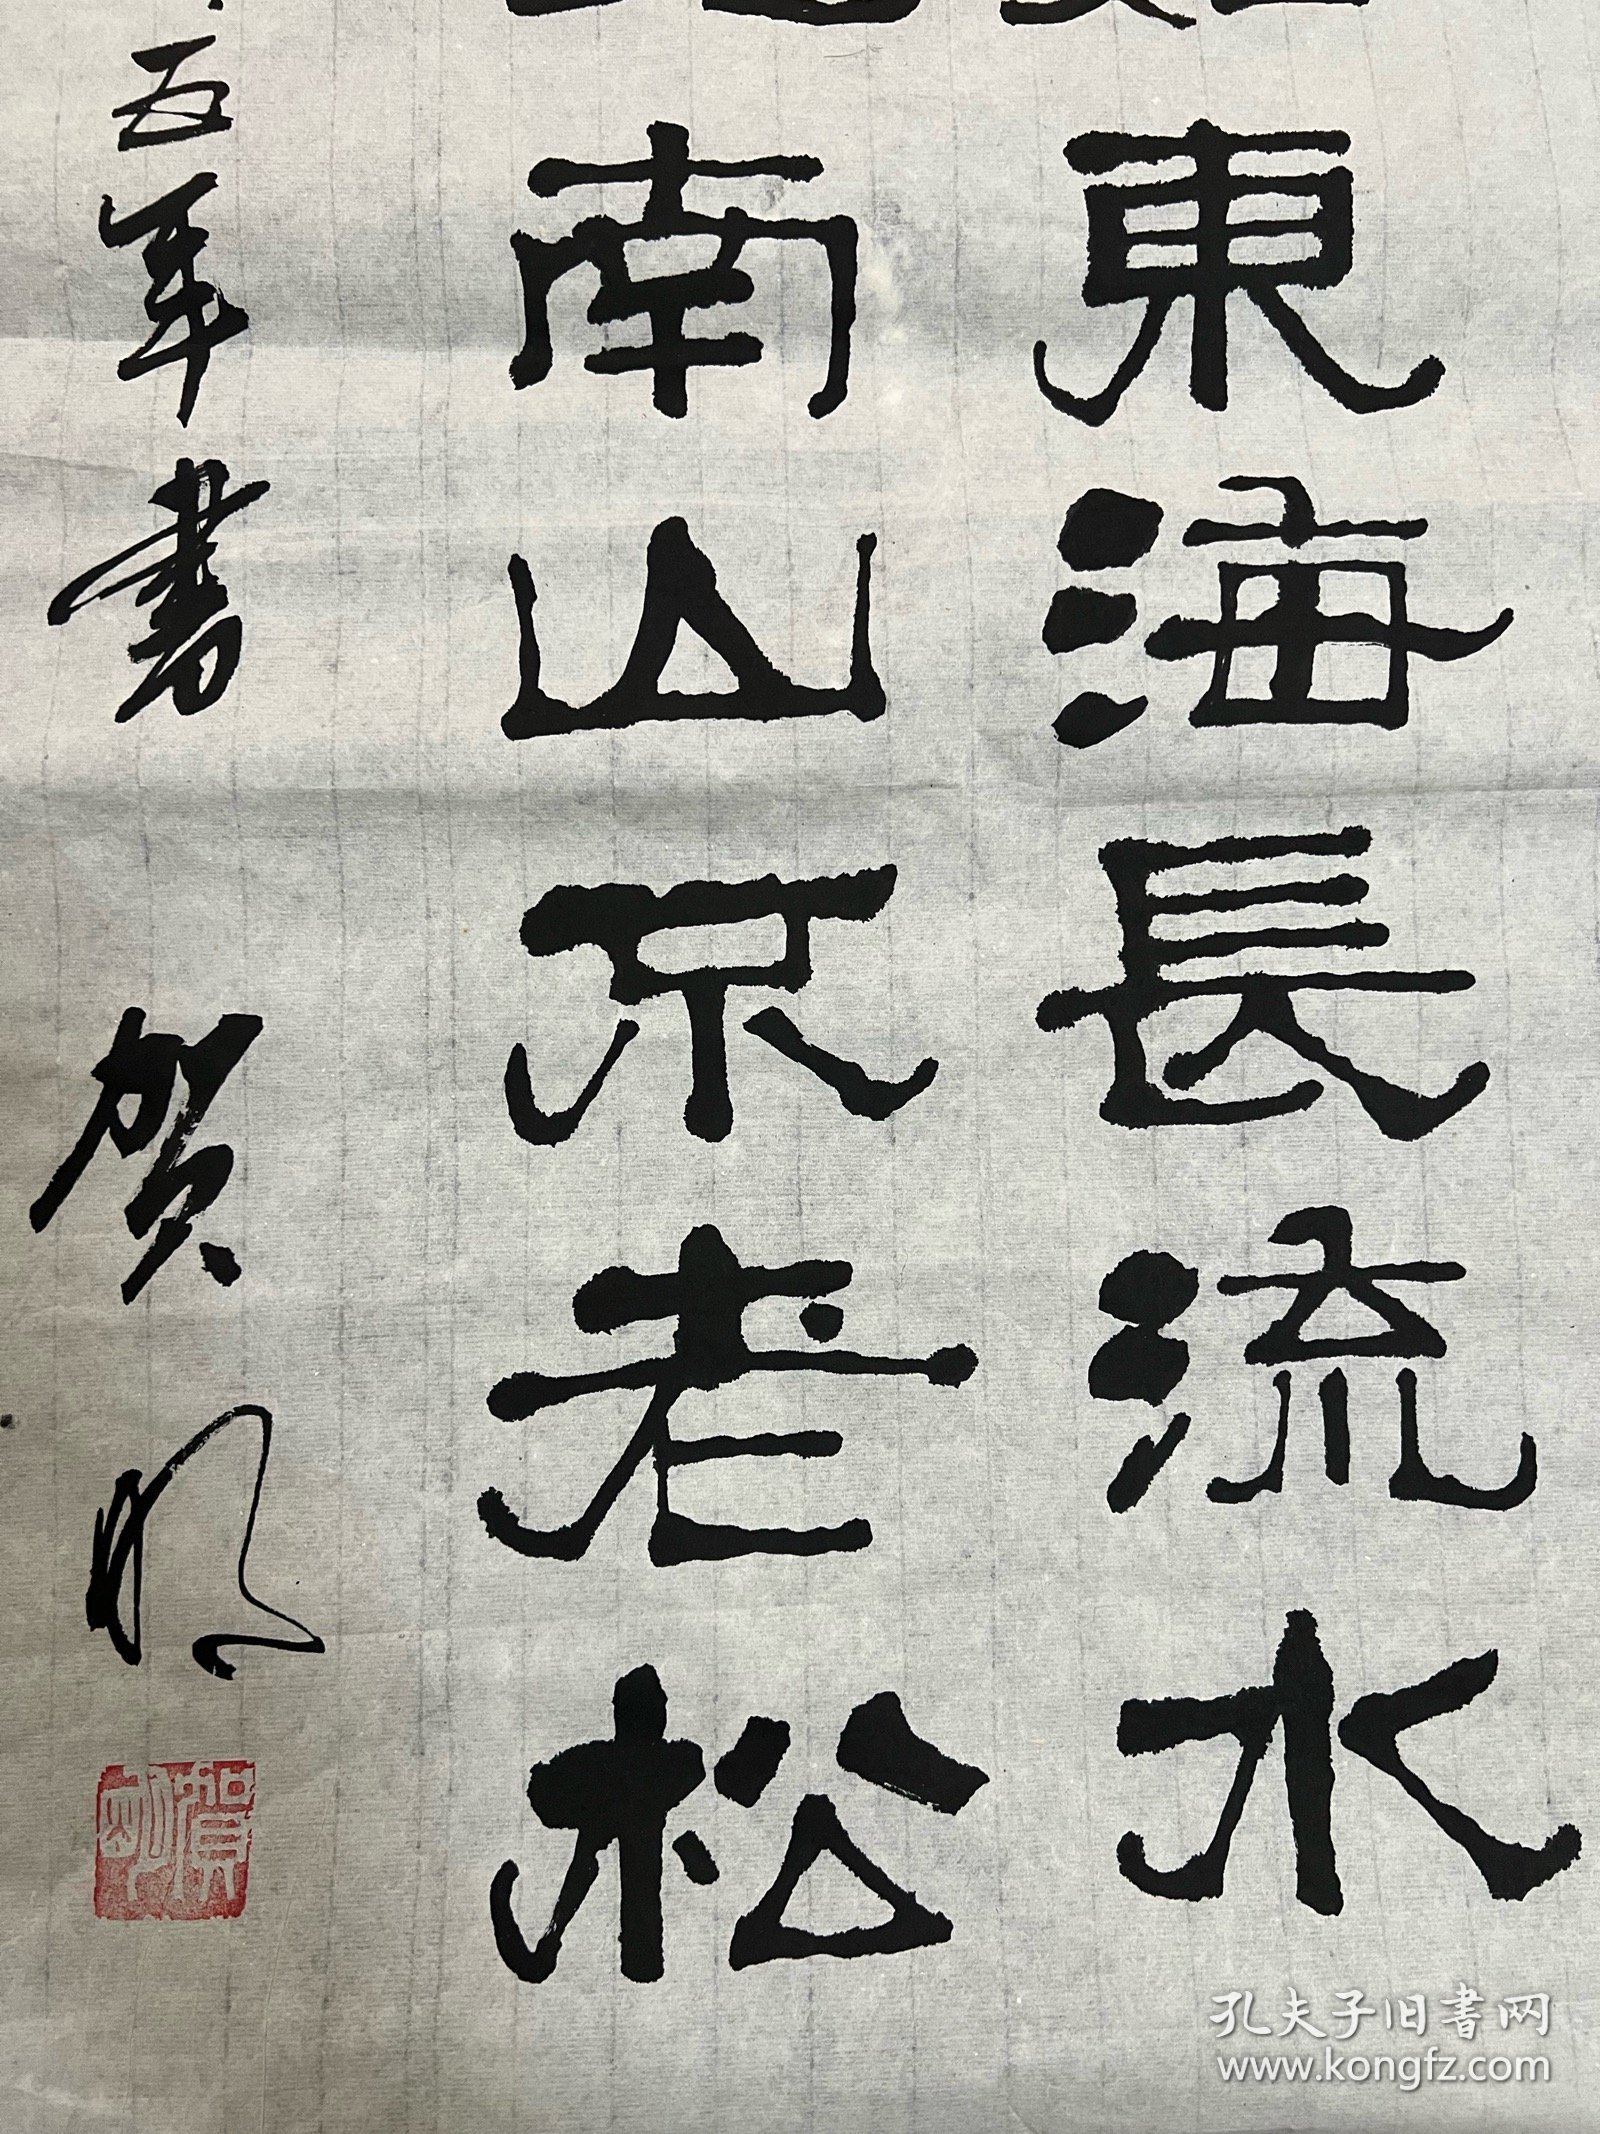 東海長流水
南山不老松
五年書
贺明
賀明
孔夫子旧书网
www.kongfz.com